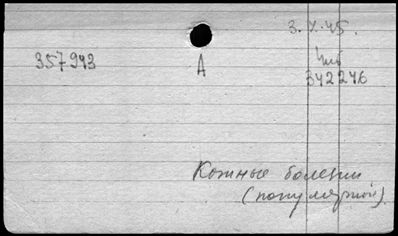 3. X. 45.
357943
А
Инв
342246
Кожные болезни
(популярной).